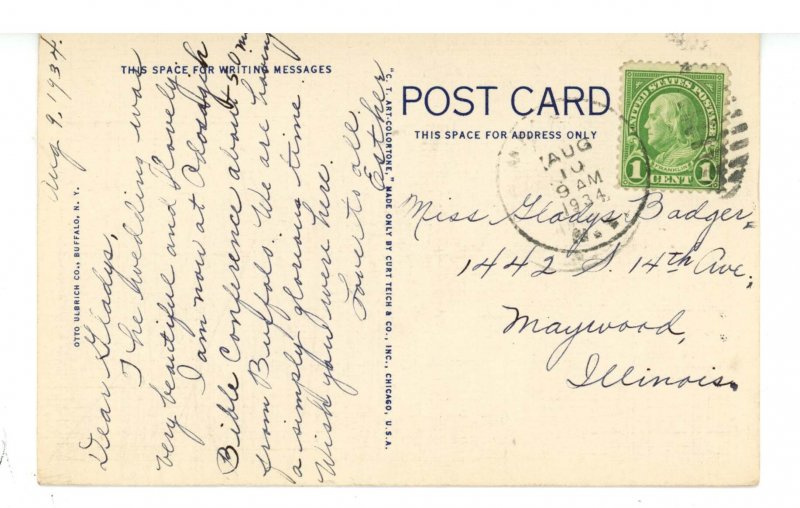 THIS SPACE FOR WRITING MESSAGES
Aug 9, 1934.
Dear Gladys,
The wedding was
very beautiful and lovely.
I am now at
Bible Conference about 50 mi
from Buffalo. We are having
a simply glorious time.
Wish you were here.
Love to all.
Esther
OTTO ULBRICH CO., BUFFALO, N. Y.
"C. T. ART-COLORTONE," MADE ONLY BY CURT TEICH & CO., INC., CHICAGO, U.S.A.
POST CARD
THIS SPACE FOR ADDRESS ONLY
AUG
10
9 AM
1934
UNITED STATES POSTAGE
FRANKLIN
1 CENT 1
Miss Gladys Badger
1442 S. 14th Ave.
Maywood,
Illinois.